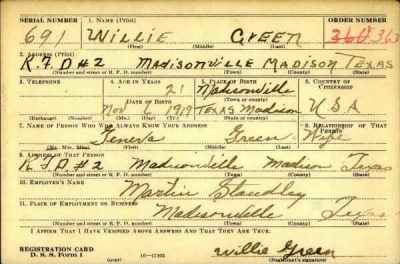 SERIAL NUMBER 1. NAME (Print) ORDER NUMBER
691 WILLIE GREEN 363
(First) (Middle) (Last)
2. ADDRESS (Print)
R.F.D #2 MADISONVILLE MADISON TEXAS
(Number and street or R. F. D. number) (Town) (County) (State)
3. TELEPHONE 4. AGE IN YEARS 5. PLACE OF BIRTH 6. COUNTRY OF CITIZENSHIP
21 Madisonville
DATE OF BIRTH (Town or county)
Nov 6 1919 Texas Madison U S A
(Exchange) (No.) (Mo.) (Day) (Yr.) (State or country)
7. NAME OF PERSON WHO WILL ALWAYS KNOW YOUR ADDRESS 8. RELATIONSHIP OF THAT PERSON
Green Wife
(Mr., Mrs., Miss) (First) (Middle) (Last)
9. ADDRESS OF THAT PERSON
R F D #2 Madisonville Madison Texas
(Number and street or R. F. D. number) (Town) (County) (State)
10. EMPLOYER'S NAME
Martin Standley
11. PLACE OF EMPLOYMENT OR BUSINESS
Madisonville Texas
(Number and street or R. F. D. number) (Town) (County) (State)
I AFFIRM THAT I HAVE VERIFIED ABOVE ANSWERS AND THAT THEY ARE TRUE.
REGISTRATION CARD
D. S. S. Form 1 (over) Willie Green
(Registrant's signature)